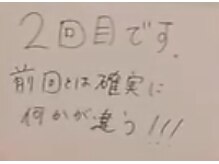 2回目です.
前回とは確実に
何かが違う!!!